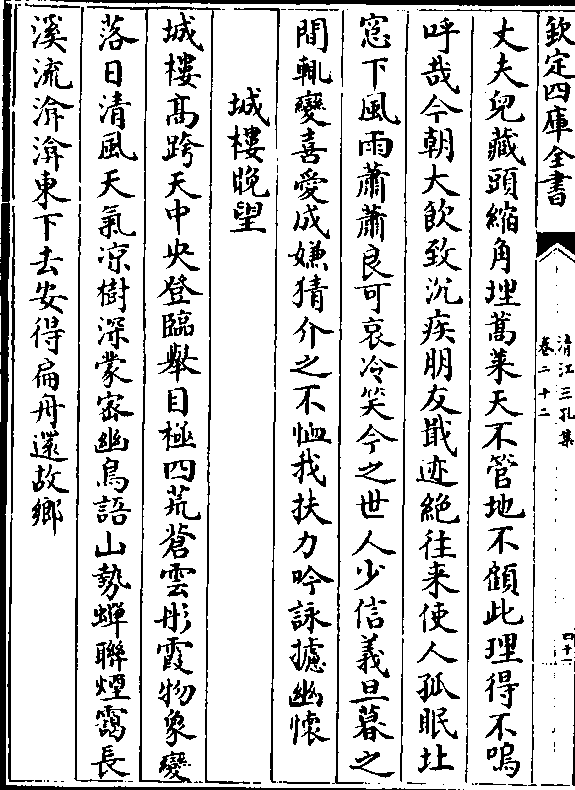 欽定四庫全書
清江三孔集
卷二十二
四十一
丈夫兒藏頭縮角埋蒿萊天不管地不顧此理得不嗚
呼哉今朝大飲致沉疾朋友戢迹絶往来使人孤眠北
窓下風雨蕭蕭良可哀冷笑今之世人少信義旦暮之
間輒變喜愛成嫌猜介之不恤我扶力吟詠攄幽懐
城樓晚望
城樓髙跨天中央登臨舉目極四荒蒼雲彤霞物象變
落日清風天氣凉樹深蒙宻幽鳥語山勢蟬聯煙靄長
溪流渰渰東下去安得扁舟還故鄉